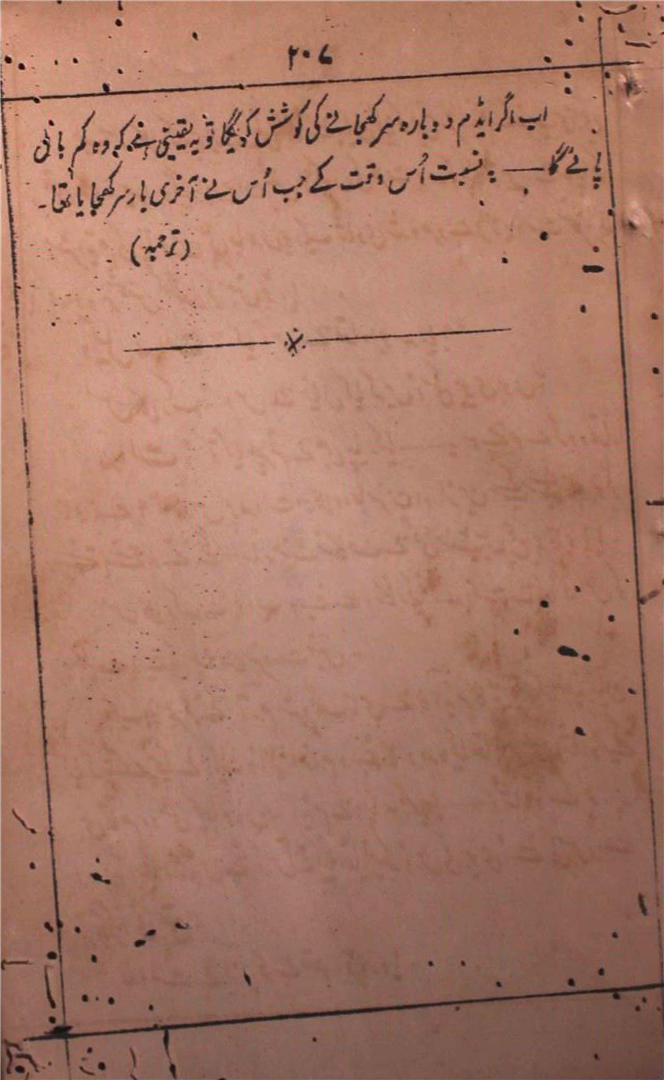 ۲۰۷
اب اگر ایڈم دوبارہ سر کھجانے کی کوشش کریگا تو یہ یقینی ہے کہ وہ کم بال
پائے گا — بہ نسبت اُس وقت کے جب اُس نے آخری بار سر کھجایا تھا۔
(ترجمہ)